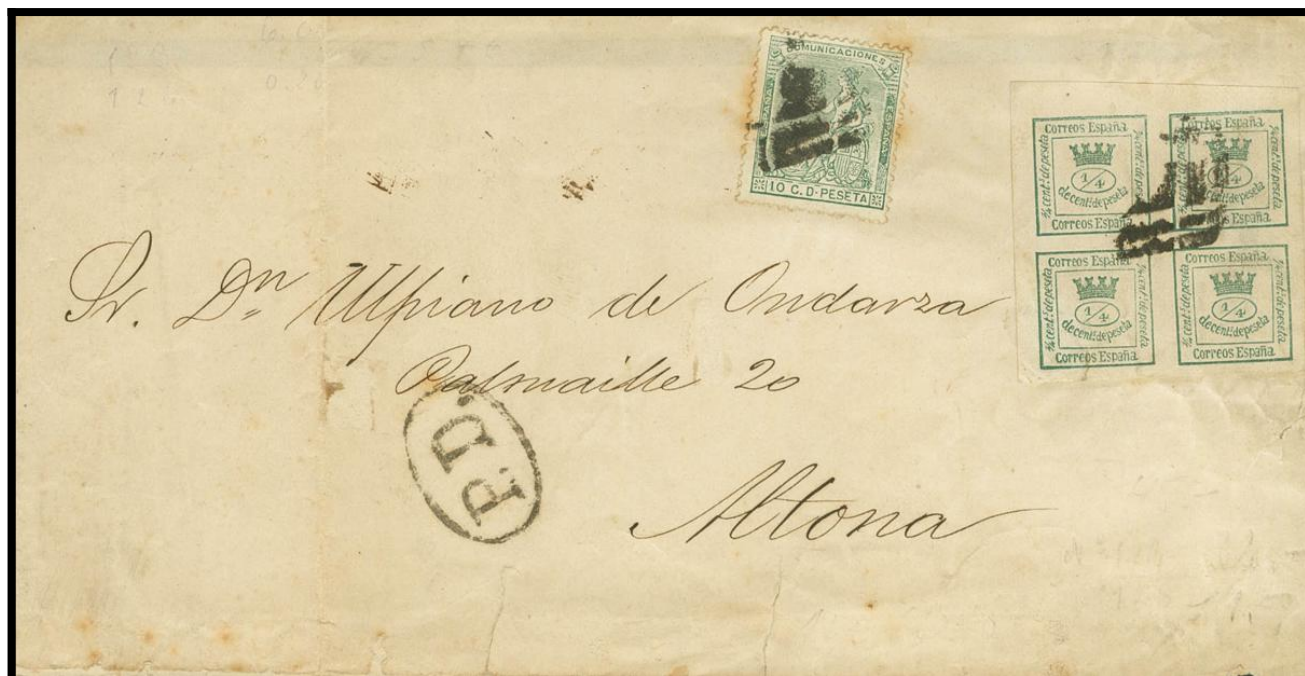 COMUNICACIONES
ESPAÑA
10 C. D. PESETA
Correos España
¼ cent.s de peseta
1/4
de cent.s de peseta
Correos España
Correos España
¼ cent.s de peseta
1/4
de cent.s de peseta
Correos España
Correos España
¼ cent.s de peseta
1/4
de cent.s de peseta
Correos España
Correos España
¼ cent.s de peseta
1/4
de cent.s de peseta
Correos España
Sr. Dn Ulpiano de Ondarza
Palmaille 20
P.D.
Altona